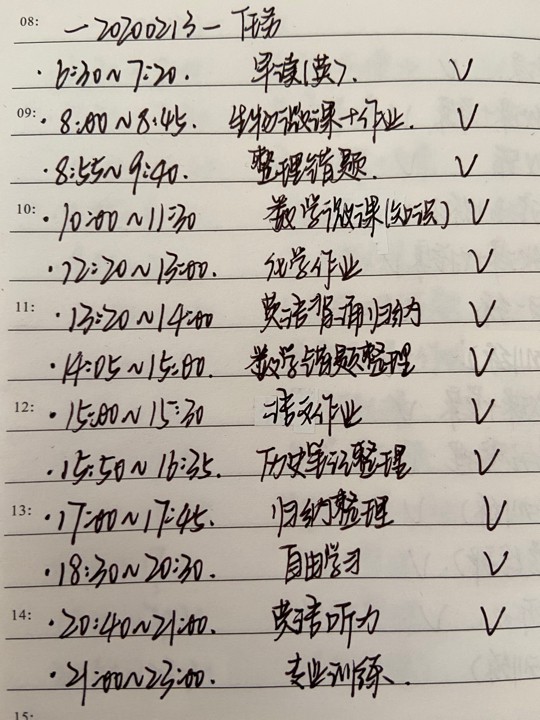 08: —20200213—
· 6:30~7:20. 早读(英). ✓
09: · 8:00~8:45. 生物微课+作业. ✓
· 8:55~9:40. 整理错题. ✓
10: · 10:00~11:30 数学微课(知识) ✓
· 12:20~13:00. 化学作业 ✓
11: · 13:20~14:00 英语背诵归纳 ✓
· 14:05~15:00. 数学错题整理 ✓
12: · 15:00~15:30 语文作业 ✓
· 15:50~16:35. 历史笔记整理 ✓
13: · 17:00~17:45. 归纳整理 ✓
· 18:30~20:30. 自由学习 ✓
14: · 20:40~21:00. 英语听力 ✓
· 21:00~23:00. 专业训练.
15: